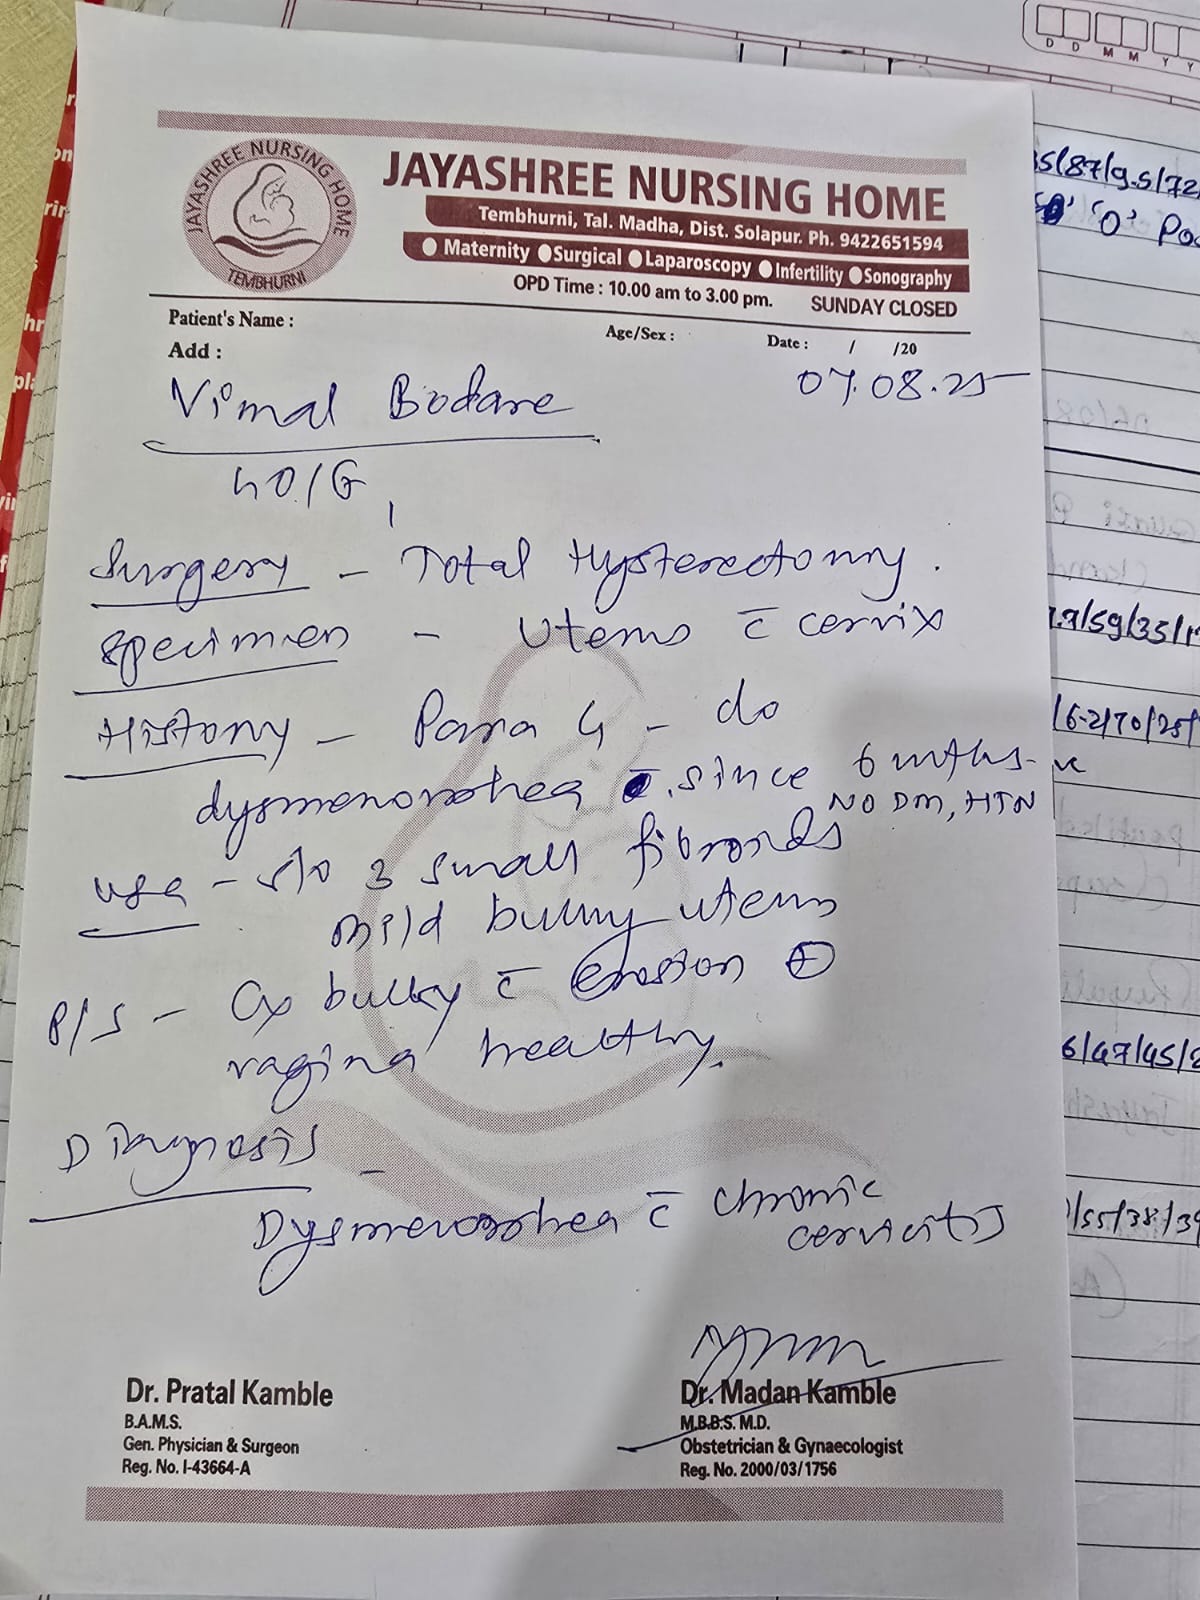 JAYASHREE NURSING HOME
TEMBHURNI
JAYASHREE NURSING HOME
Tembhurni, Tal. Madha, Dist. Solapur. Ph. 9422651594
● Maternity ●Surgical ●Laparoscopy ●Infertility ●Sonography
OPD Time : 10.00 am to 3.00 pm. SUNDAY CLOSED
Patient's Name : Age/Sex : Date : / /20
Add :
07.08.25
Vimal Bodare
40/G
Surgery - Total Hysterectomy.
Specimen - Uterus c̄ cervix
History - Para 4 - c/o
dysmenorrhea since 6 mths
NO DM, HTN
USG - s/o 3 small fibroids
mild bulky uterus
P/S - Cx bulky c̄ erosion ⊕
vagina healthy.
Diagnosis -
Dysmenorrhea c̄ chronic
cervicitis
Dr. Pratal Kamble
B.A.M.S.
Gen. Physician & Surgeon
Reg. No. I-43664-A
Dr. Madan Kamble
M.B.B.S. M.D.
Obstetrician & Gynaecologist
Reg. No. 2000/03/1756
D D M M Y Y
5/87/9.5/72
'O' Pos
7.9/59/35/1
/6.2/70/25/
6/47/45/
/55/38/39